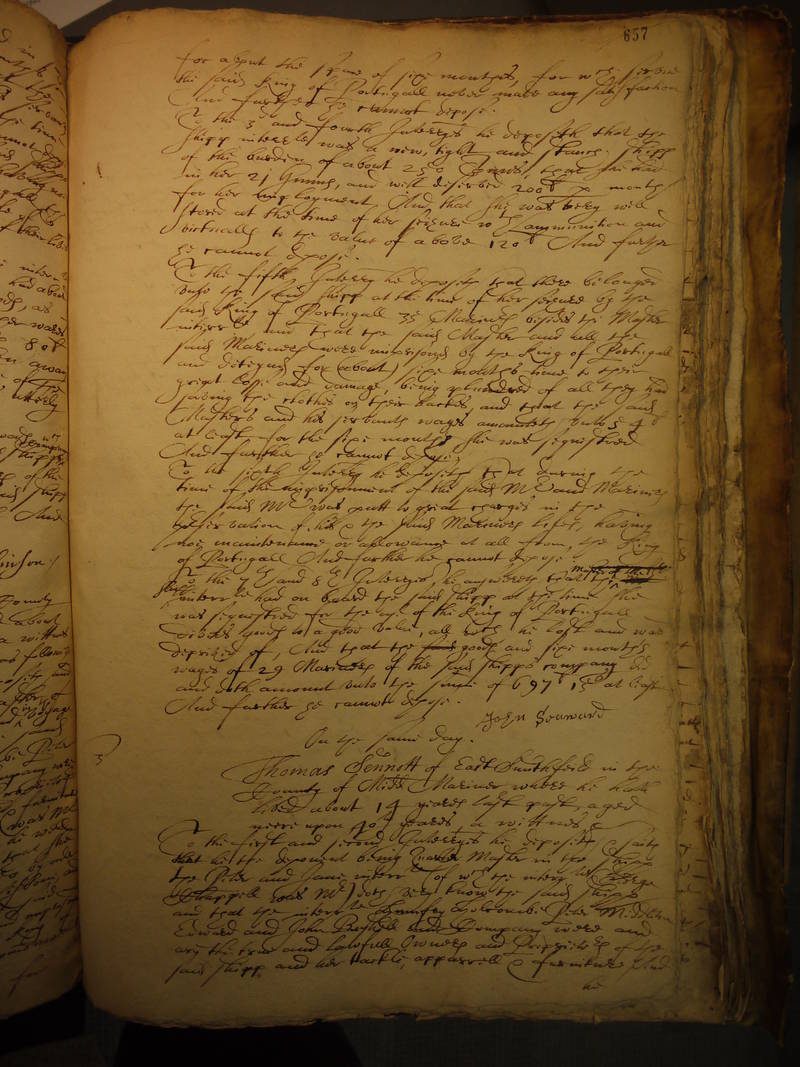 657
for about the space of sixe monthes, for wch service
the said King of Portugall never made any satisfaction
And further he cannot depose.
To the 3d and fourth Interries he deposeth that the
shipp interrte was a new, tight and stanch shipp
of the burden of about 250 Tonns, that she had
in her 21 Gunns, and will deserve 200li p month
for her imployment, And that she was very well
stored at the time of her seizure wth ammunition and
victualls to the value of above 120li And further
he cannot depose.
To the fifth Interry he deposeth that there belonged
unto the said shipp at the time of her seizure by the
said King of Portugall 35 Mariners besides the Master
interrte and that the said Master and all the
said Mariners were imprisoned by the King of Portugall
and deteyned for (about) sixe months time to their
great losse and damage, being plundered of all they had
saving the clothes on their backes, and that the said
Masters and his servants wages amounteth unto
at least for the sixe months she was sequestred
And further he cannot depose
To the sixth Interry he deposeth that during the
time of the imprisonment of the said Mr and Mariners
the said Mr was putt to great charges in the
preservation of his & the said Mariners lifes, having
noe maintenance or allowance at all from the King
of Portugall And further he cannot depose
To the 7th and 8th Interries, he answereth that the
interrte had on board the said shipp at the time she
was sequestred for the use of the King of Portugall
goods to a good value, all which he lost and was
deprived of, And that the said goods and sixe months
wages of 29 Mariners of the said shipps company did
and doth amount unto the summe of 697li 15s at least
And further he cannot depose.
John Seaward
On the same day.
3
Thomas Sennott of East Smithfield in the
County of Midds Mariner where he hath
lived about 14 yeares last past, aged
neere upon 40 yeares, a wittnes &
To the first and second Interries he deposeth & saith
that he the deponent being Master in the shipp
the Peter and Jane interrte (of wch the interrte George
Chappell was Mr) doth very well know the said shipp
and that the interrte Peter Middleton
Edward and John and Company were and
are the true and lawfull Owners and Proprietors of the
said shipp, and her tackle, apparrell & furniture And
he